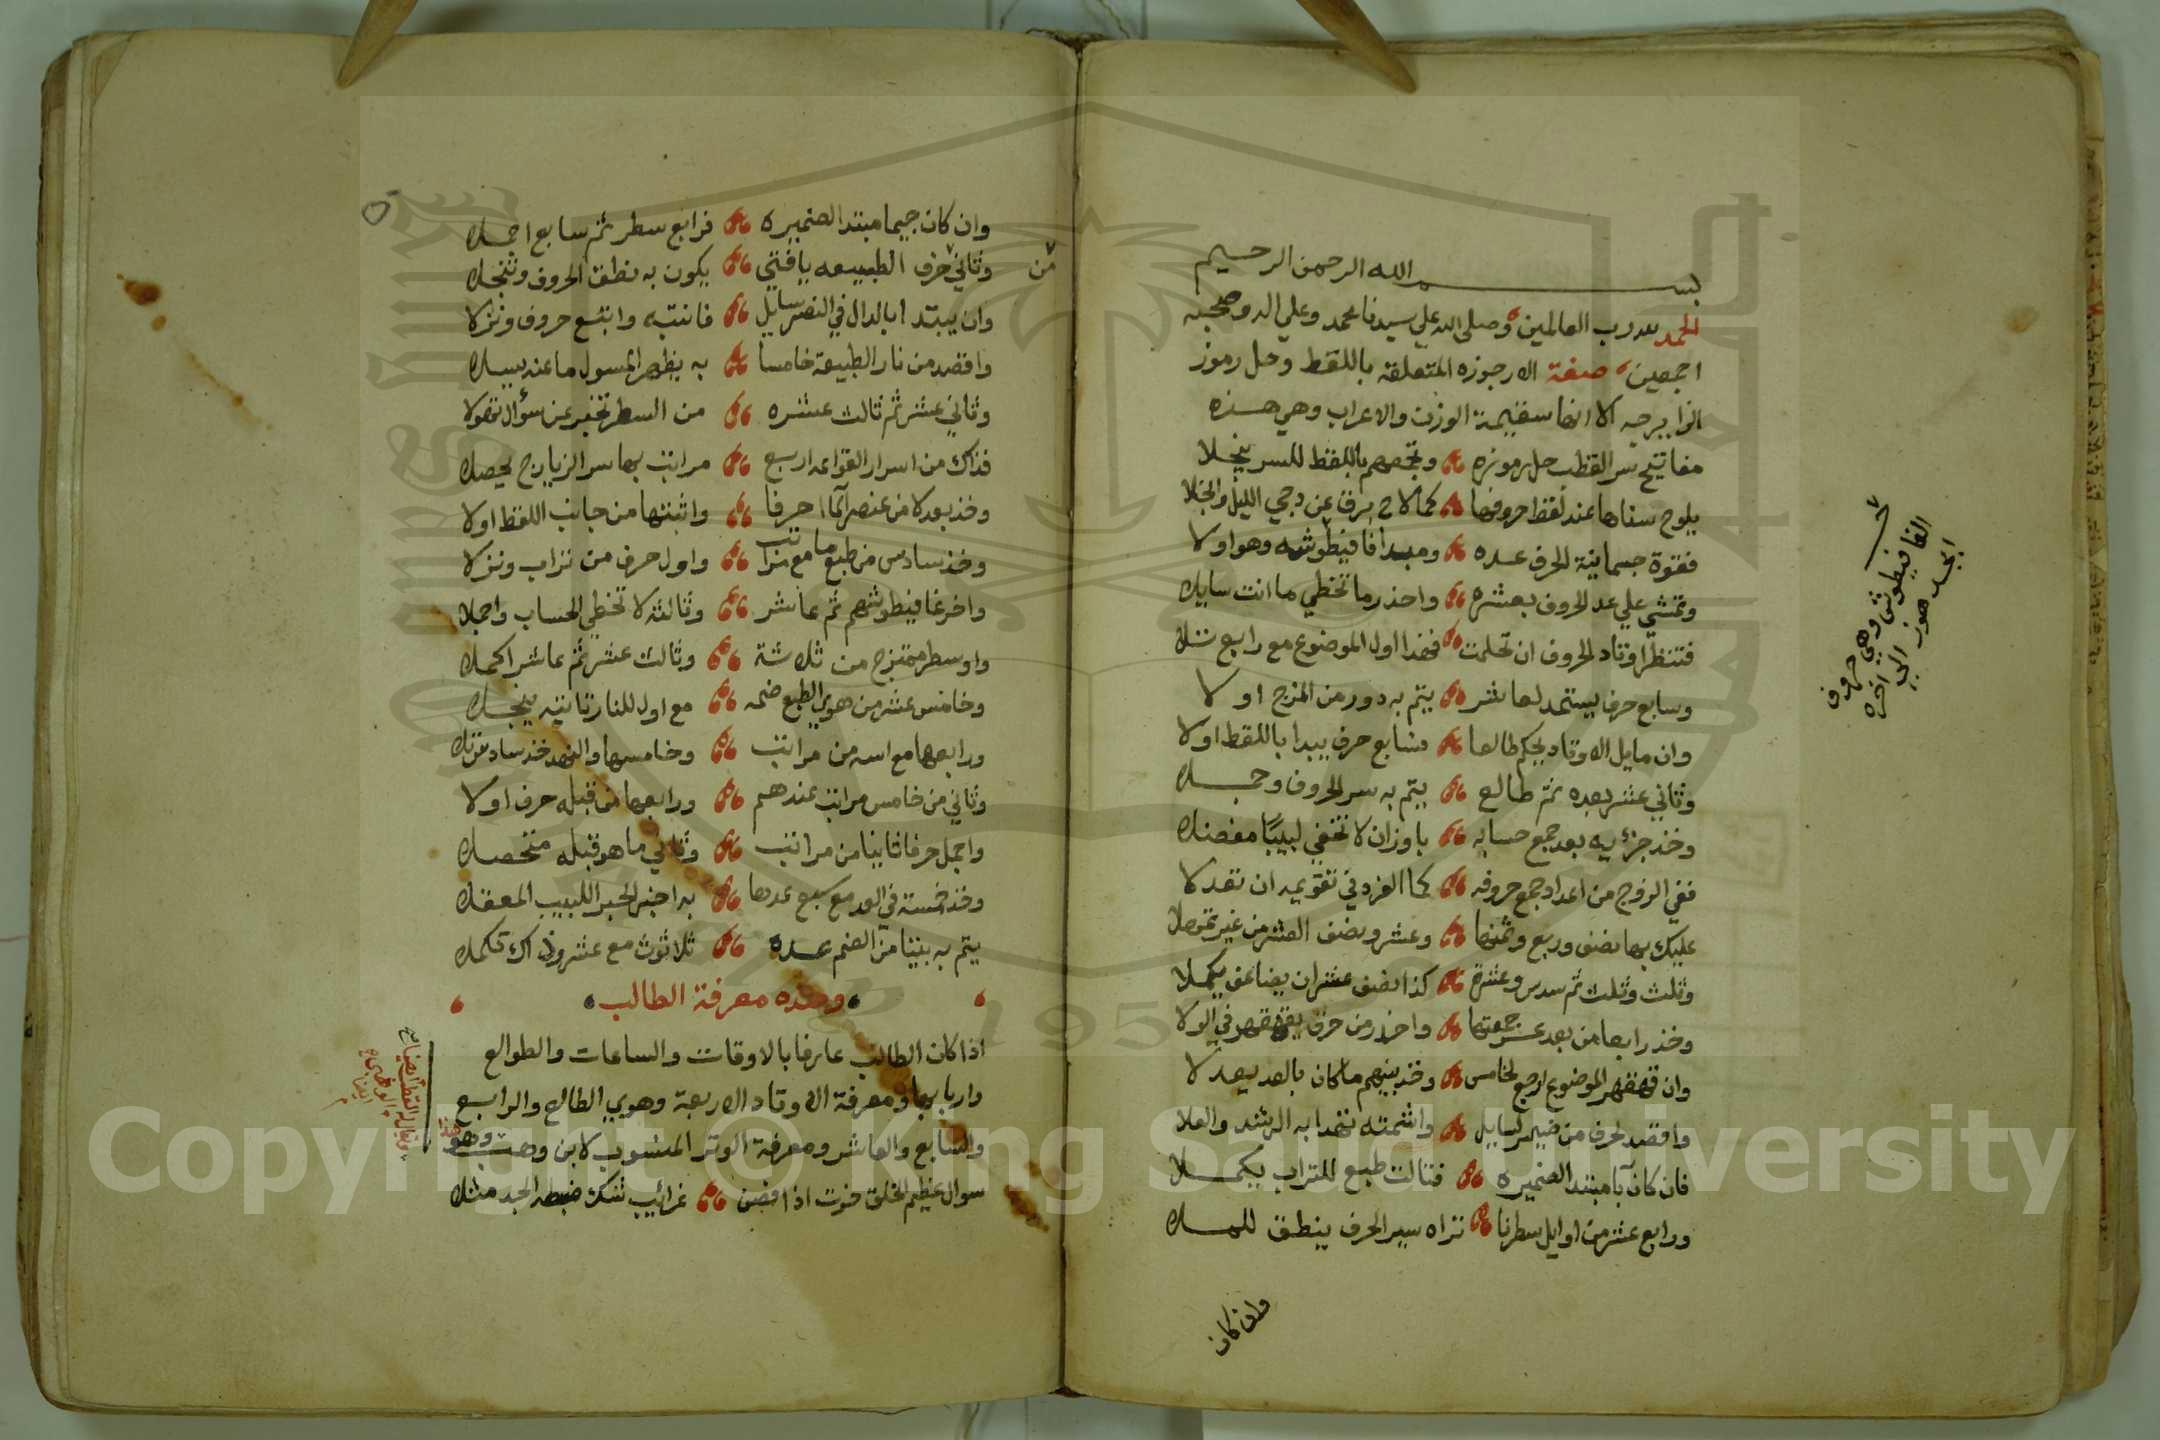 بسم الله الرحمن الرحيم
الحمد لله رب العالمين وصلى الله علي سيدنا محمد وعلي اله وصحبه
اجمعين صفة الارجوزه المتعلقه باللقط وحل رموز
الزايرجه الا انها سقيمة الوزن والاعراب وهي هذه
مفاتيح سر القطب حل رموزه وتجمعهم باللقط للسر ينجلا
يلوح سناها عند لقط حروفها كما لاح برق عن دجي الليل والجلا
فقوة جسمانية للحرف عده ومبدا فافيطوشه وهو اولا
وتمشي علي عد الحروف بعشره واحذر ما تخطي ما انت سايلا
فتنظر اوتاد الحروف ان تحلمت فخذ اول الموضوع مع رابع تلا
وسابع حرف يستمد لعاشر يتم به دور من المزج اولا
وان مايل الاوتاد يحكم طالعا فسابع حرف يبدا باللقط اولا
وثاني عشر بعده ثم طالع يتم به سر الحروف وجملا
وخذ جزئيه بعد جمع حسابه باوزان لا تخفي لبيبًا مفضلا
ففي الزوج من اعداد جمع حروفه كما الفرد في تقويمه ان تعدلا
عليك بها نصف وربع وثمنها وعشر ونصف العشر من غير تمهلا
وثلث وثلث ثم سدس وعشرة كذا نصف عشر ان يضاعف يكملا
وخذ رابعا من بعد عشر جمعتها واحذر من حرف يقهقهر في الولا
وان قهقهر الموضوع ارجع لخامس وخذ بينهم ما كان بالعد يعدلا
واقصد لحرف من ضمير لسايل واثبته تهدا به الرشد والعلا
فان كان بآ مبتدا لضميره فثالث طبع للتراب يكملا
ورابع عشر من اوايل سطرنا تراه سير الحرف ينطق للملا
وان كان
الغافيطوش وهي حروف
ابجد هوز الي اخره
وان كان جيما مبتدا لضميره فرابع سطر ثم سابع اجملا
وثاني حرف الطبيعه يا فتي يكون به نطق الحروف وتنجلا
من
وان يبتدا بالدال في النص سايل فانتبه واتبع حروف ونزلا
واقصد من نار الطبيعة خامسا به يظهر المسول ما عنده يسلا
وثاني عشر ثم ثالث عشره من السطر تخبر عن سؤال تهولا
فذاك من اسرار القواعد اربع مراتب بها سر الزيارج يحصلا
وخذ بعد لا من عنصر المآ احرفا واثبتها من جانب اللقط اولا
وخذ سادس من طبع مامع مراتب واول حرف من تراب ونزلا
واخر غافيطوشهم ثم عاشر وثالثه لا تخطي الحساب واجملا
واوسط ممتزج من ثلاثة وثالث عشر ثم عاشر اكملا
وخامس عشر من هوي الطبع ضمه مع اول للنار ثانيه ينجلا
ورابعها مع اسه من مراتب وخامسها والنهد خذ سادس تلا
وثاني من خامس مراتب عندهم ورابعها من قبله حرف اولا
واجمل حرفا ثانيا من مراتب وثاني ما هو قبله متحصلا
وخذ خمسة في العد مع سبع عدها به اخبر الحبر اللبيب المعقلا
يتم به بيتا من الضم عده ثلاثون مع عشرون اك تكملا
وهذه معرفة الطالب
اذا كان الطالب عارفا بالاوقات والساعات والطوالع
واربابها ومعرفة الاوتاد الاربعة وهوي الطالع والرابع
والسابع والعاشر ومعرفة الوتر المنسوب لابن وهب وهو هذا
سوال عظيم الخلق حزت اذا فصن غرائب شك ضبطه الجد مثلا
ويقال له القطب ايضا